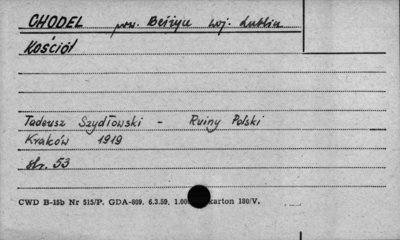 CHODEL pow. Bełżyce woj. Lublin
Kościół
Tadeusz Szydłowski - Ruiny Polski
Kraków 1919
str. 53
CWD B-15b Nr 515/P. GDA-609. 6.3.59. 1.00 karton 180/V.